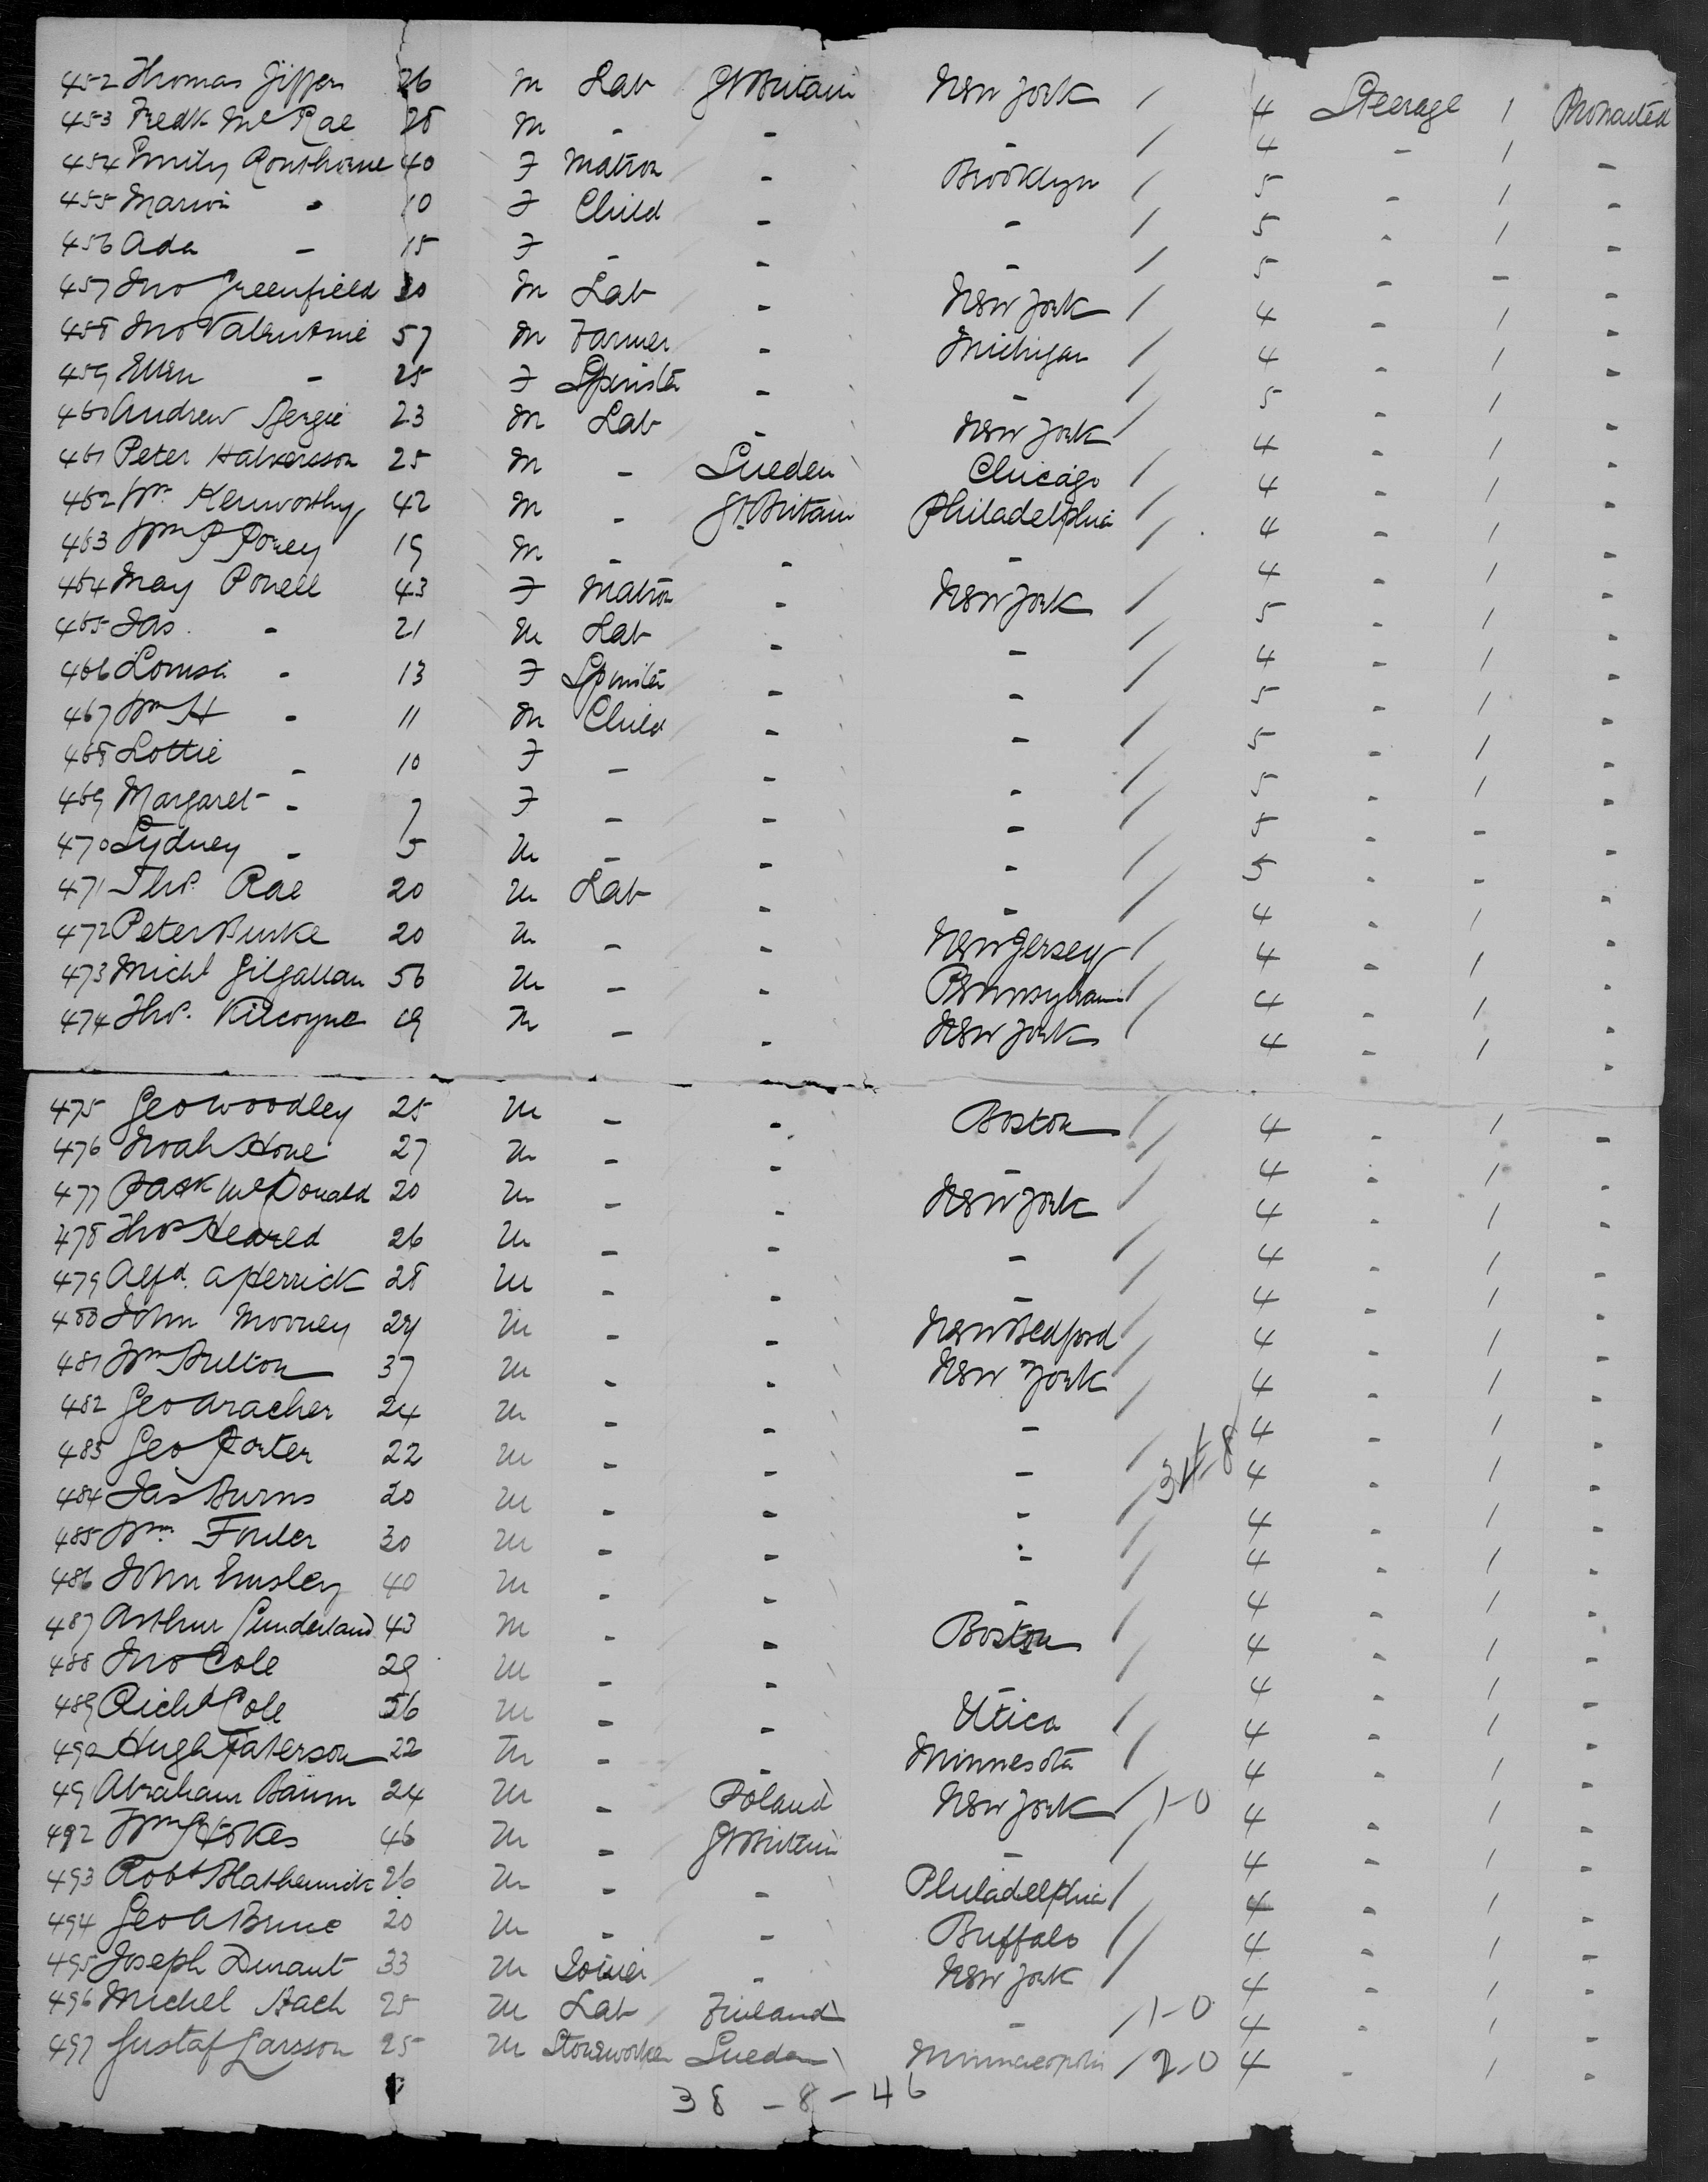 452 Thomas Jiffers 26 M Lab Gt Britain New York / 4 Steerage 1 Protracted
453 Fredk McRae 28 M - - - / 4 - 1 -
454 Emily 40 F Matron - Brooklyn / 5 - 1 -
455 Marion - 10 F Child - - / 5 - 1 -
456 Ada - 15 F - - - / 5 - - -
457 Jno Greenfield 30 M Lab - New York / 4 - 1 -
458 Jno Valentine 57 M Farmer - Michigan / 4 - 1 -
459 Ellen - 25 F Spinster - - / 5 - 1 -
460 Andrew 23 M Lab - New York / 4 - 1 -
461 Peter Halvorsson 25 M - Sueden Chicago / 4 - 1 -
462 Wm Kenworthy 42 M - Gt Britain Philadelphia / 4 - 1 -
463 Wm P 19 M - - - / 4 - 1 -
464 May Powell 43 F Matron - New York / 5 - 1 -
465 Jas. - 21 M Lab - - / 4 - 1 -
466 Louisa - 13 F Spinster - - / 5 - 1 -
467 Wm H - 11 M Child - - / 5 - 1 -
468 Lottie - 10 F - - - / 5 - 1 -
469 Margaret - 7 F - - - / 5 - - -
470 Sydney - 5 M - - - / 5 - - -
471 Thos. Rae 20 M Lab - - / 4 - 1 -
472 Peter Burke 20 M - - New Jersey / 4 - 1 -
473 Michl Gilgallan 56 M - - Pennsylvania / 4 - 1 -
474 Thos. Kilcoyne 19 M - - New York / 4 - 1 -
475 Geo Woodley 25 M - - Boston / 4 - 1 -
476 Noah Hone 27 M - - - / 4 - 1 -
477 Patk McDonald 20 M - - New York / 4 - 1 -
478 Thos Heared 26 M - - - / 4 - 1 -
479 Alfd. A Herrick 28 M - - - / 4 - 1 -
480 John Mooney 24 M - - New Bedford / 4 - 1 -
481 Wm 37 M - - New York / 4 - 1 -
482 Geo Aracher 24 M - - - / 4 - 1 -
483 Geo Porter 22 M - - - / 4 - 1 -
484 Jas Burns 20 M - - - / 4 - 1 -
485 Wm. Fowler 30 M - - - / 4 - 1 -
486 John Emsley 40 M - - - / 4 - 1 -
487 Arthur Sunderland 43 M - - Boston / 4 - 1 -
488 Jno Cole 29 M - - - / 4 - 1 -
489 Richd Cole 56 M - - Utica / 4 - 1 -
490 Hugh Paterson 22 M - - Minnesota / 4 - 1 -
491 Abraham Baum 24 M - Poland New York / 1-0 4 - 1 -
492 Wm Stokes 46 M - Gt Britain - / 4 - 1 -
493 Robt 26 M - - Philadelphia / 4 - 1 -
494 Geo A Bruce 20 M - - Buffalo / 4 - 1 -
495 Joseph Durant 33 M Joiner - New York / 4 - 1 -
496 Michel Bach 25 M Lab Finland - / 1-0 4 - 1 -
497 Gustaf Larsson 25 M Stoneworker Sueden Minneapolis / 2-0 4 - 1 -
38 - 8 - 46